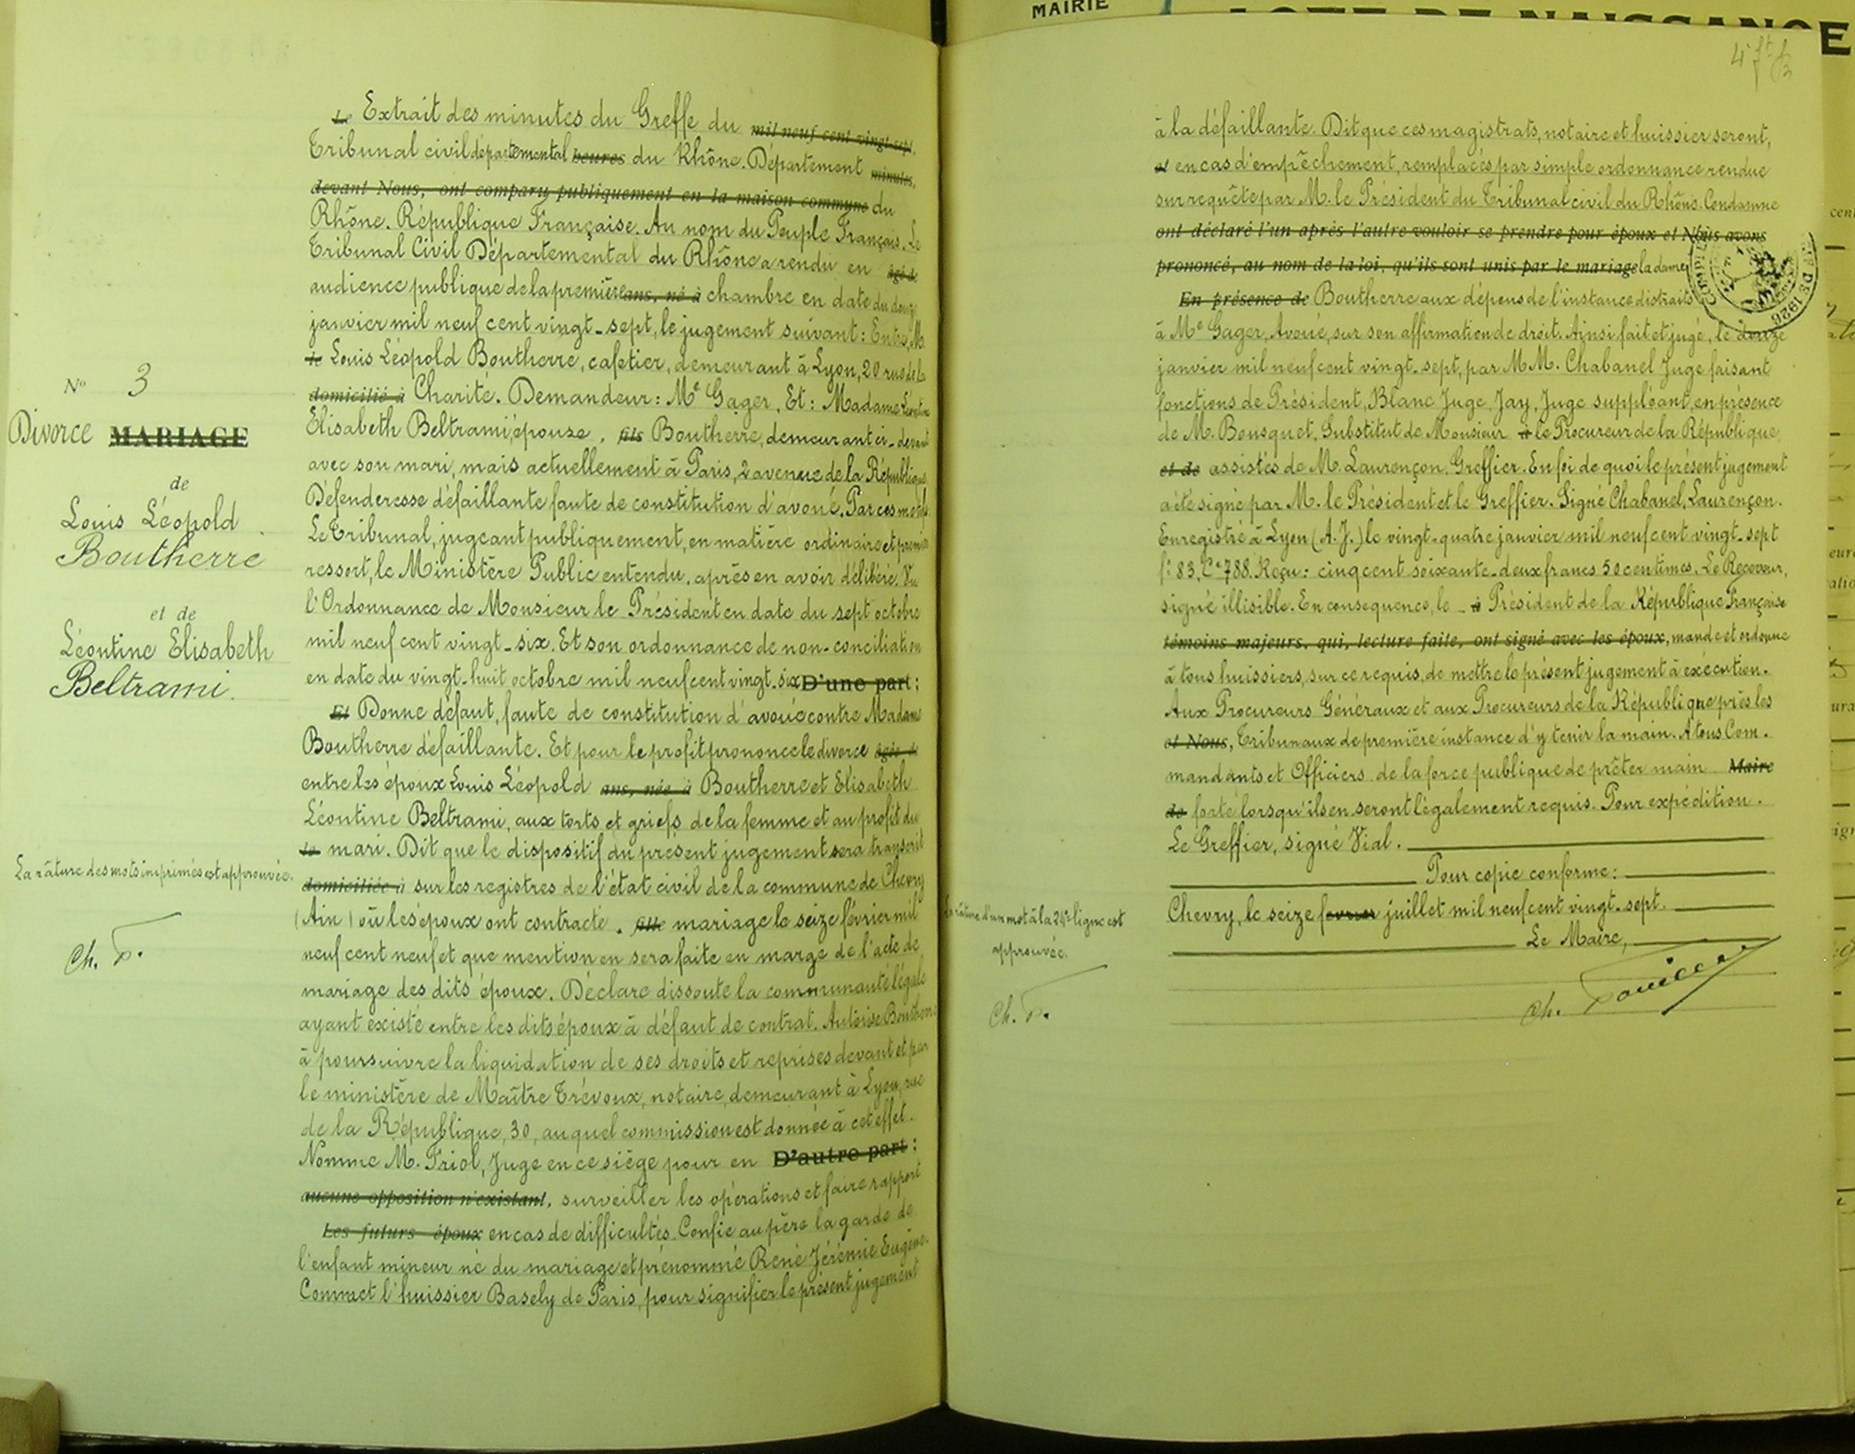 MAIRIE
ACTE DE NAISSANCE
4
Le Extrait des minutes du Greffe du mil neuf cent vingt-sept,
Tribunal civil départemental heures du Rhône. Département minutes,
devant Nous, ont comparu publiquement en la maison commune du
Rhône. République Française. Au nom du Peuple Français. Le
Tribunal Civil Départemental du Rhône a rendu en âgé de
audience publique de la première ans, né à chambre en date du douze
janvier mil neuf cent vingt-sept, le jugement suivant: Entre, M.
le Louis Léopold Boutherre, cafetier, demeurant à Lyon, 20 rue de la
domicilié à Charité. Demandeur: Me Gager. Et: Madame Léontine
Elisabeth Beltrami, épouse, fils Boutherre, demeurant ci-devant
avec son mari, mais actuellement à Paris, 2 avenue de la République
Défenderesse défaillante faute de constitution d'avoué. Par ces motifs
Le Tribunal, jugeant publiquement, en matière ordinaire et premier
ressort, le Ministère Public entendu, après en avoir délibéré. Vu
l'Ordonnance de Monsieur le Président en date du sept octobre
mil neuf cent vingt-six. Et son ordonnance de non-conciliation
en date du vingt-huit octobre mil neuf cent vingt-six D'une part:
Et Donne défaut, faute de constitution d'avoué contre Madame
Boutherre défaillante. Et pour le profit prononce le divorce âgée de
entre les époux Louis Léopold ans, née à Boutherre et Elisabeth
Léontine Beltrami, aux torts et griefs de la femme et au profit du
le mari. Dit que le dispositif du présent jugement sera transcrit
domiciliée à sur les registres de l'état civil de la commune de Chevry
(Ain) où les époux ont contracté, fille mariage le seize février mil
neuf cent neuf et que mention en sera faite en marge de l'acte de
mariage des dits époux. Déclare dissoute la communauté légale
ayant existé entre les dits époux à défaut de contrat. Autorise Boutherre
à poursuivre la liquidation de ses droits et reprises devant et par
le ministère de Maître Trévoux, notaire, demeurant à Lyon, rue
de la République, 30, auquel commission est donnée à cet effet.
Nomme M. Friol, Juge en ce siège pour en D'autre part:
aucune opposition n'existant, surveiller les opérations et faire rapport
Les futurs époux en cas de difficultés. Confie au père la garde de
l'enfant mineur né du mariage et prénommé René Jérémie Eugène.
Commet l'huissier Basely de Paris, pour signifier le présent jugement
No 3
Divorce MARIAGE
de
Louis Léopold
Boutherre
et de
Léontine Elisabeth
Beltrami.
La râture des mots imprimés est approuvée.
Ch. P.
à la défaillante. Dit que ces magistrats, notaire et huissier seront,
et en cas d'empêchement, remplacés par simple ordonnance rendue
sur requête par M. le Président du Tribunal civil du Rhône. Condamne
ont déclaré l'un après l'autre vouloir se prendre pour époux et Nous avons
prononcé, au nom de la loi, qu'ils sont unis par le mariage la dame
En présence de Boutherre aux dépens de l'instance distraits
à Me Gager, Avoué, sur son affirmation de droit. Ainsi fait et jugé, le douze
janvier mil neuf cent vingt-sept, par M.M. Chabanel Juge faisant
fonctions de Président, Blanc Juge, Jay, Juge suppléant, en présence
de M. Bousquet, Substitut de Monsieur à le Procureur de la République,
et de assistés de M. Laurençon. Greffier. En foi de quoi le présent jugement
a été signé par M. le Président et le Greffier. Signé Chabanel, Laurençon.
Enregistré à Lyon (A.J.) le vingt-quatre janvier mil neuf cent vingt-sept
f° 83, Ce 788. Reçu: cinq cent soixante-deux francs 50 centimes. Le Receveur,
signé illisible. En conséquence, le à Président de la République Française
témoins majeurs, qui, lecture faite, ont signé avec les époux, mande et ordonne
à tous huissiers, sur ce requis, de mettre le présent jugement à exécution.
Aux Procureurs Généraux et aux Procureurs de la République près les
et Nous, Tribunaux de première instance d'y tenir la main. A tous Com-
mandants et Officiers de la force publique de prêter main Maire
de forte lorsqu'ils en seront légalement requis. Pour expédition.
Le Greffier, signé Vial.
Pour copie conforme:
Chevry, le seize février juillet mil neuf cent vingt-sept.
Le Maire,
Ch.
La râture d'un mot à la 24e ligne est
approuvée.
Ch. P.
DE 1926